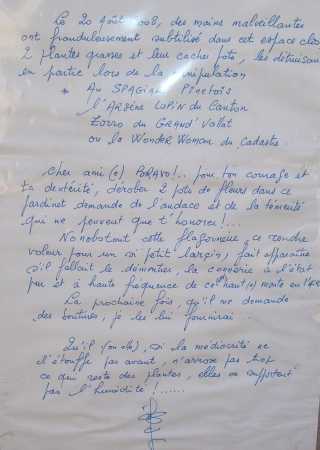 Le 20 Août 2008, des mains malveillantes
ont frauduleusement subtilisé dans cet espace clos
2 plantes grasses et leur caches pots, les détruisant
en partie lors de la manipulation
* Au SPAGIRI Pinetois
l'ARSÈNE LUPIN du Canton
Zorro du GRAND' Vallat
ou la WONDER WOMAN du Cadastre.
Cher ami (e) BRAVO!.. pour ton courage et
ta dextérité, dérober 2 pots de fleurs dans ce
jardinet demande de l'audace et de la témérité
qui ne peuvent que t'honorer!...
Nonobstant cette flagornerie, ce rendre
voleur pour un si petit larçin, fait apparaître
s'il fallait le démontrer, la connerie à l'état
pur et à haute fréquence de cet haut(e) monté en l'air
La prochaine fois, qu'il me demande
des boutures, je les lui fournirai...
Qu'il (ou elle), si la médiocrité ne
l'étouffe pas avant, n'arrose pas trop
ce qui reste des plantes, elles ne supportent
pas l'humidité!......